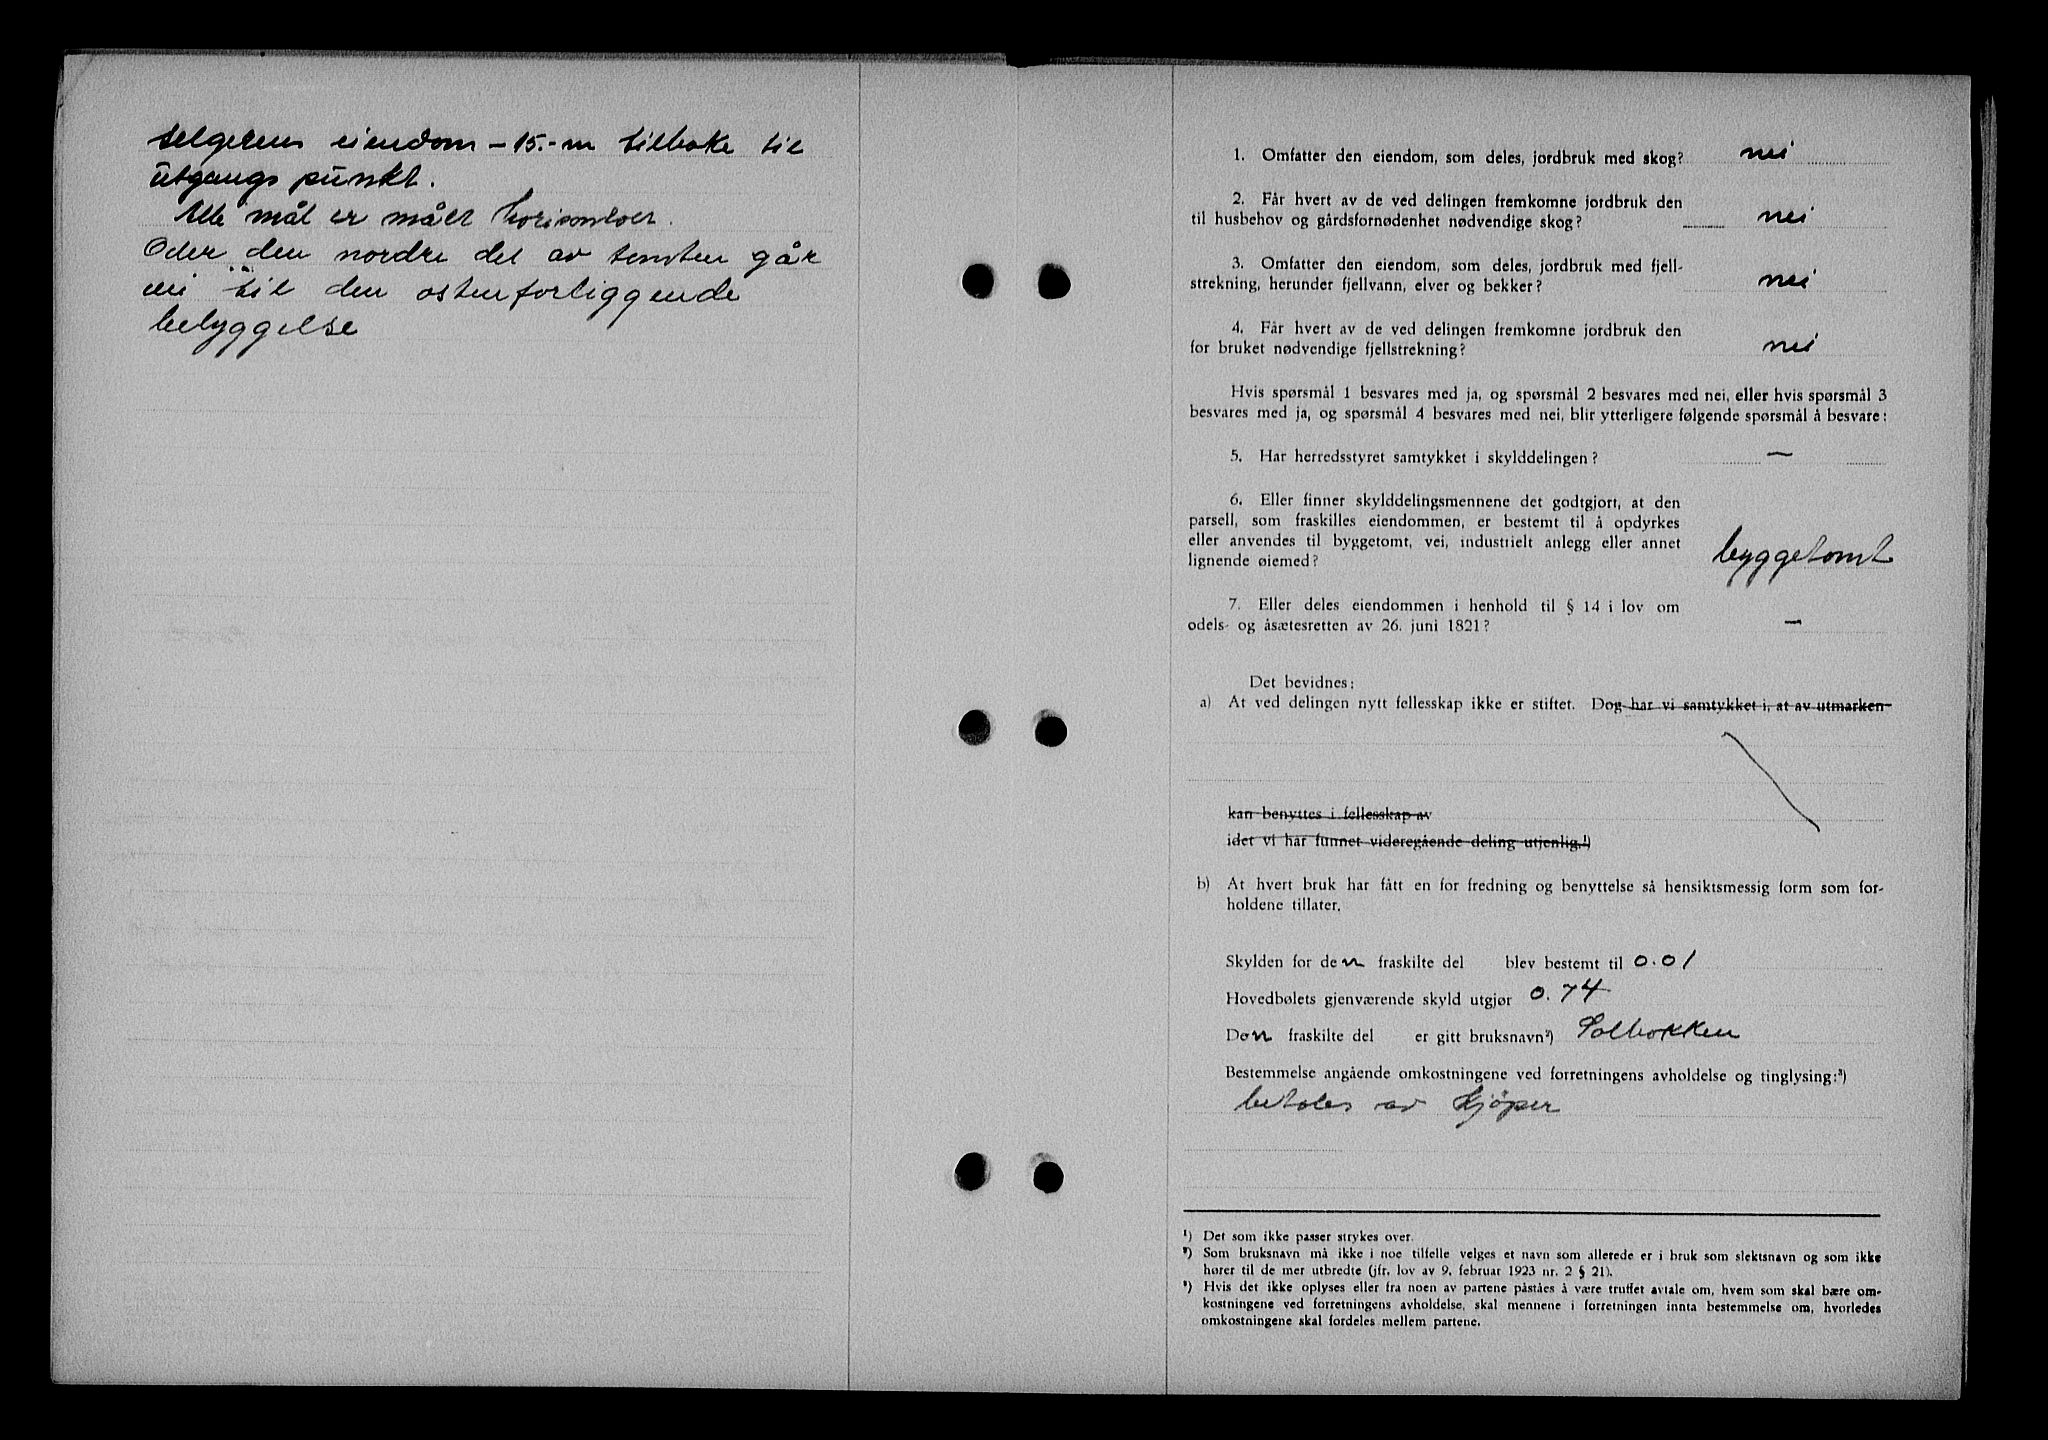 selgerens eiendom – 15.- m tilbake til
utgangs punkt.
Alle mål er målt horisontalt.
Over den nordre del av tomten går
vei til den ostenforliggende
bebyggelse
1. Omfatter den eiendom, som deles, jordbruk med skog? nei
2. Får hvert av de ved delingen fremkomne jordbruk den
til husbehov og gårdsfornødenhet nødvendige skog? nei
3. Omfatter den eiendom, som deles, jordbruk med fjell-
strekning, herunder fjellvann, elver og bekker? nei
4. Får hvert av de ved delingen fremkomne jordbruk den
for bruket nødvendige fjellstrekning? nei
Hvis spørsmål 1 besvares med ja, og spørsmål 2 besvares med nei, eller hvis spørsmål 3
besvares med ja, og spørsmål 4 besvares med nei, blir ytterligere følgende spørsmål å besvare:
5. Har herredsstyret samtykket i skylddelingen? —
6. Eller finner skylddelingsmennene det godtgjort, at den
parsell, som fraskilles eiendommen, er bestemt til å opdyrkes
eller anvendes til byggetomt, vei, industrielt anlegg eller annet
lignende øiemed? byggetomt
7. Eller deles eiendommen i henhold til § 14 i lov om
odels- og åsætesretten av 26. juni 1821? —
Det bevidnes:
a) At ved delingen nytt fellesskap ikke er stiftet. Dog har vi samtykket i, at av utmarken
kan benyttes i fellesskap av
idet vi har funnet videregående deling utjenlig.¹)
b) At hvert bruk har fått en for fredning og benyttelse så hensiktsmessig form som for-
holdene tillater.
Skylden for den fraskilte del blev bestemt til 0.01
Hovedbølets gjenværende skyld utgjør 0.74
Den fraskilte del er gitt bruksnavn²) Solbakken
Bestemmelse angående omkostningene ved forretningens avholdelse og tinglysing:³)
betales av Kjöper
¹) Det som ikke passer strykes over.
²) Som bruksnavn må ikke i noe tilfelle velges et navn som allerede er i bruk som slektsnavn og som ikke
hører til de mer utbredte (jfr. lov av 9. februar 1923 nr. 2 § 21).
³) Hvis det ikke oplyses eller fra noen av partene påståes å være truffet avtale om, hvem som skal bære om-
kostningene ved forretningens avholdelse, skal mennene i forretningen innta bestemmelse om, hvorledes
omkostningene skal fordeles mellem partene.